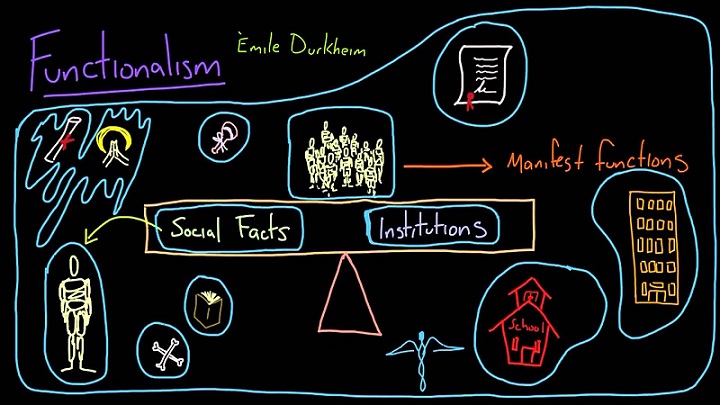 Functionalism
Èmile Durkheim
Manifest functions
Social Facts
Institutions
School